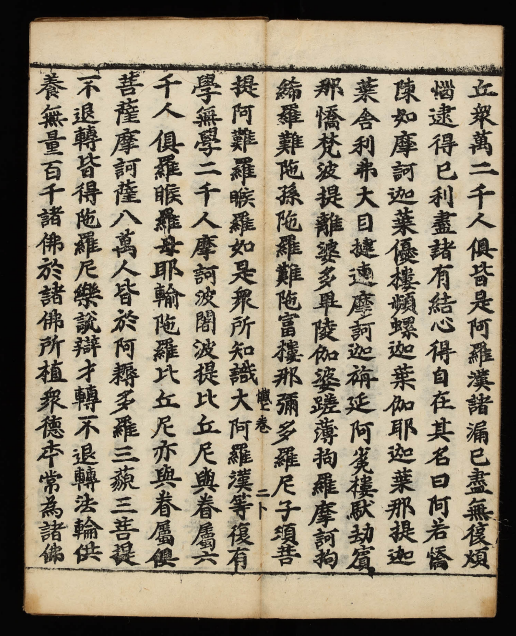 丘衆萬二千人俱皆是阿羅漢諸漏已盡無復煩
惱逮得已利盡諸有結心得自在其名曰阿若憍
陳如摩訶迦葉優樓頻螺迦葉伽耶迦葉那提迦
葉舍利弗大目揵連摩訶迦旃延阿㝹樓馱劫賓
那憍梵波提離婆多畢陵伽婆蹉薄拘羅摩訶拘
絺羅難陁孫陁羅難陁富樓那彌多羅尼子須菩
提阿難羅睺羅如是衆所知識大阿羅漢等復有
學無學二千人摩訶波闍波提比丘尼與眷屬六
千人俱羅睺羅母耶輸陁羅比丘尼亦與眷屬俱
菩薩摩訶薩八萬人皆於阿耨多羅三藐三菩提
不退轉皆得陁羅尼樂說辯才轉不退轉法輪供
養無量百千諸佛於諸佛所植衆德本常爲諸佛